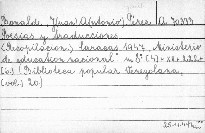 Bonalde, (Juan) A(ntonio) Pérez A 70333
Poesías y traducciones.
(Recopilación.) Caracas 1947, Ministerio
de educación nacional. 8° (4)+XX+222+
(Biblioteca popular Venezolana,
(vol.) 20.)